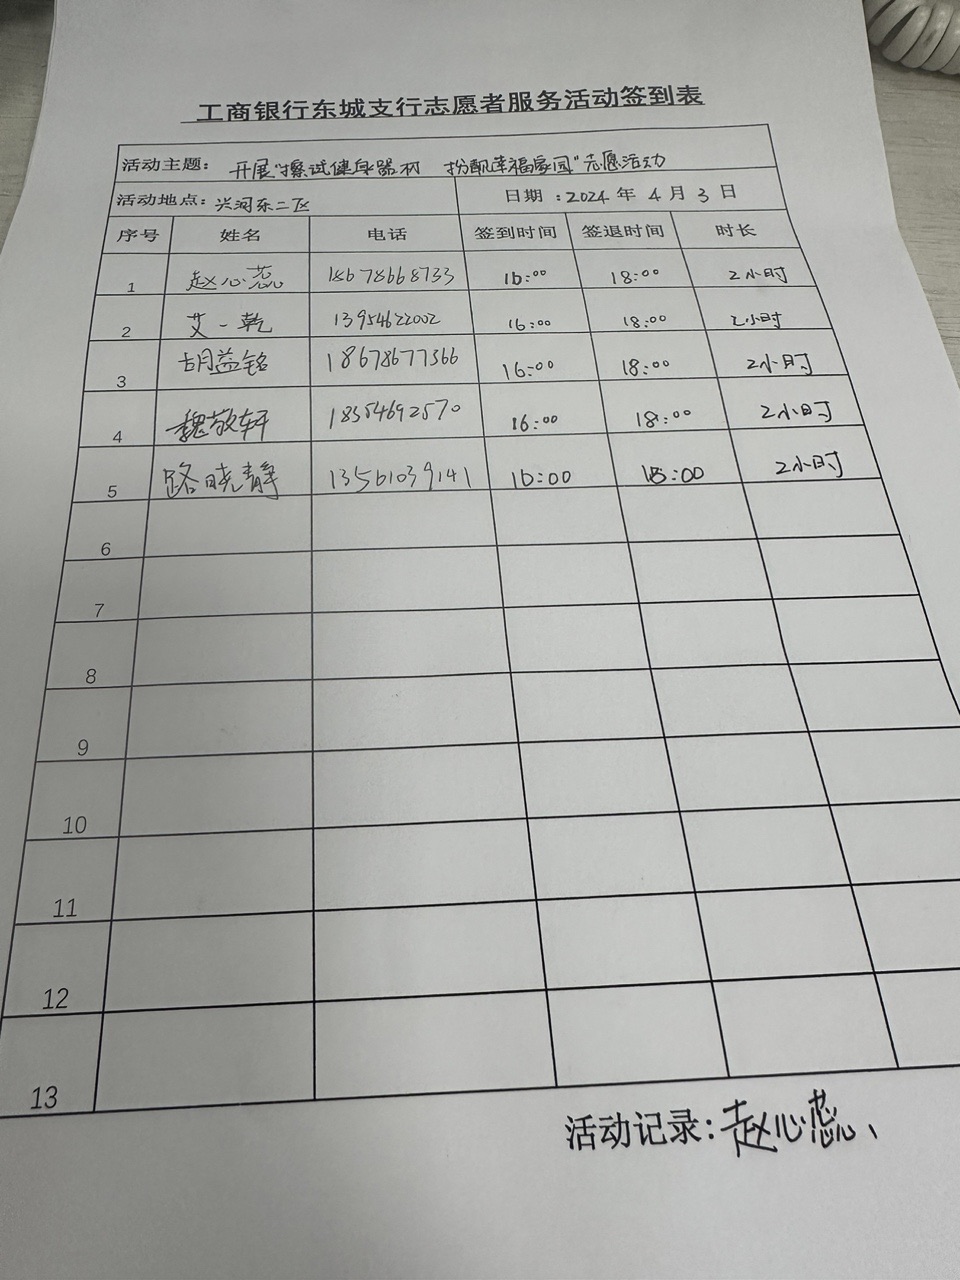 工商银行东城支行志愿者服务活动签到表
活动主题: 开展“擦试健身器材 扮靓幸福家园”志愿活动
活动地点: 兴河东二区 日期:2024年4月3日
序号 姓名 电话 签到时间 签退时间 时长
1 赵心蕊 18678668733 16:00 18:00 2小时
2 艾一乾 13954622002 16:00 18:00 2小时
3 胡益铭 18678677366 16:00 18:00 2小时
4 魏敬轩 18354692570 16:00 18:00 2小时
5 路晓静 13561039141 16:00 18:00 2小时
6
7
8
9
10
11
12
13
活动记录:赵心蕊、